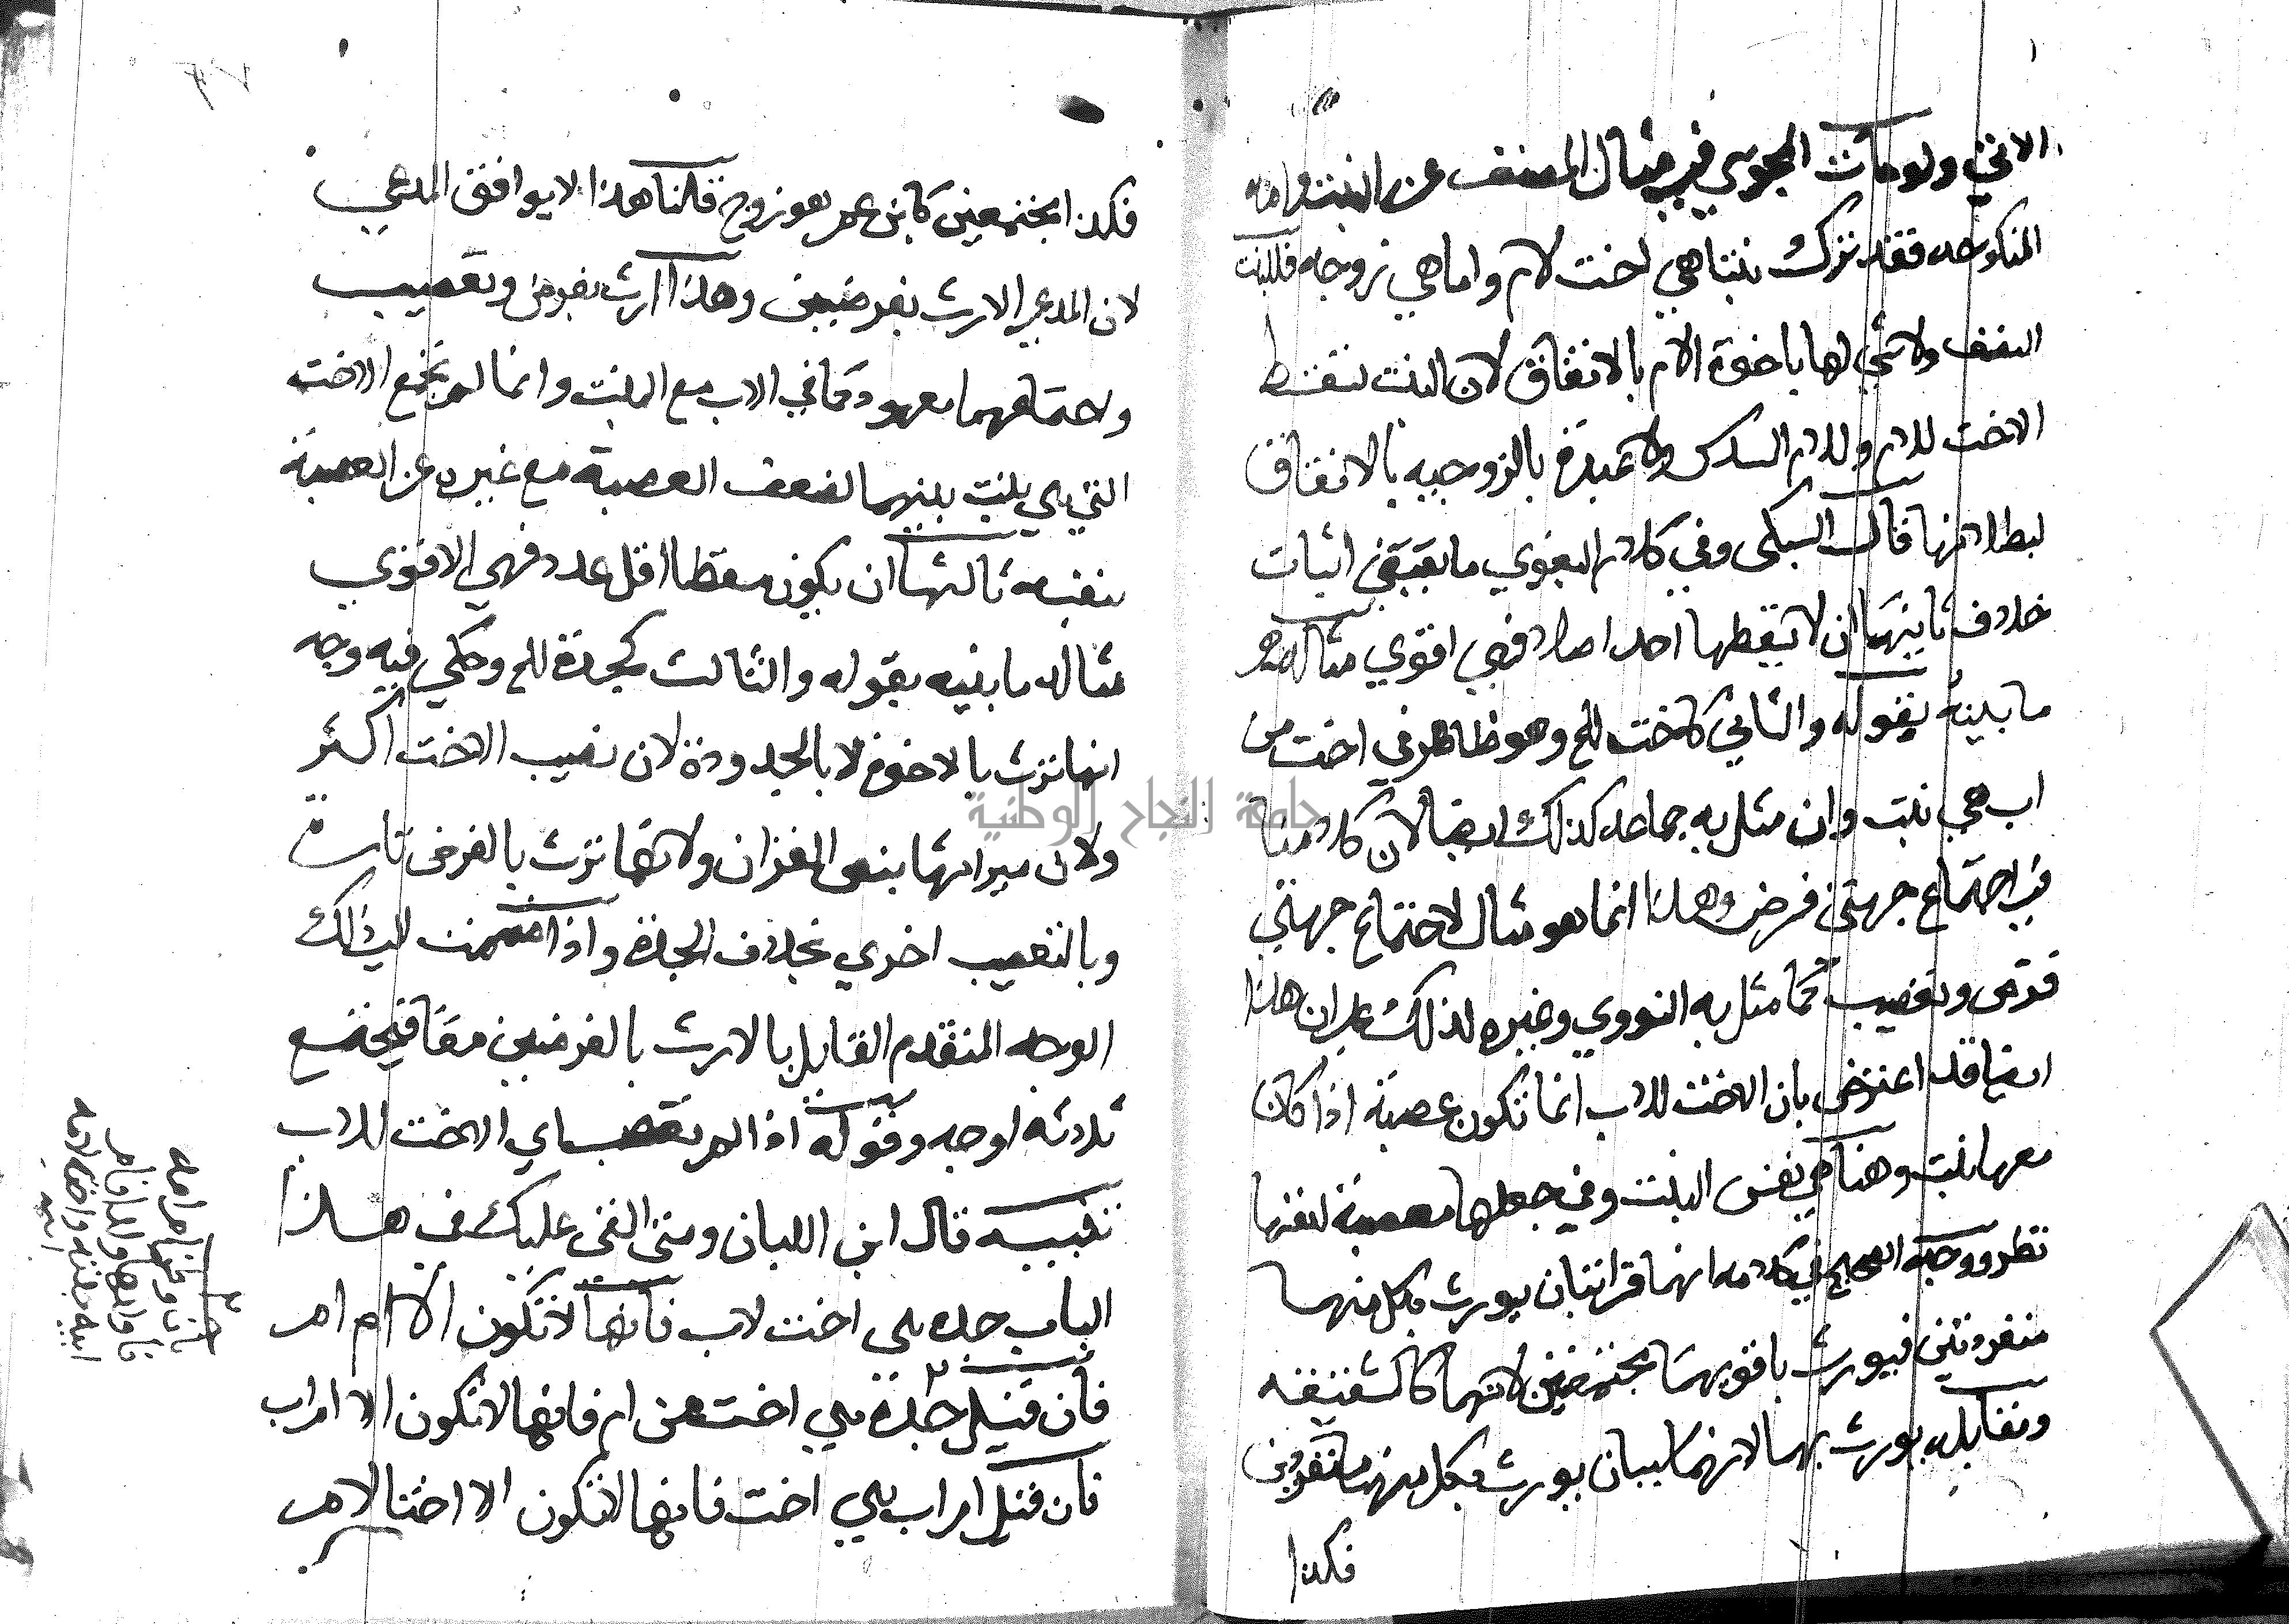 الاتي ولومات المجوسي في مثال المصنف عن البنت وامه
المنكوحه فقد ترك بنتا هي اخت لام واما هي زوجه فللبنت
النصف ولا شي لها باخوة الام بالاتفاق لان البنت تسقط
الاخت للام وللام السدس ولا عبرة بالزوجيه بالاتفاق
لبطلانها قال السبكي وفي كلام البغوي ما يقتضي اثبات
خلاف ثانيها ان لا يسقطها احد اصلا فهي اقوي مثاله
ما بينه بقوله والثاني كاخت الخ وهو ظاهر في اخت من
اب هي بنت وان مثل به جماعه كذلك ايضا لان كلامنا
في اجتماع جهتي فرض وهذا انما هو مثال لاجتماع جهتي
فرض وتعصيب كما مثل به النووي وغيره لذلك علي ان هذا
ايضا قد اعترض بان الاخت للاب انما تكون عصبة اذا كان
معها بنت وهنا هي نفس البنت وفي جعلها معصبة لنفسها
نظر ووجه الصحيح في كلامه انهما قرابتان يورث بكل منهما
منفردتين فيورث باقويهما مجتمعتين لانهما كالشقيقه
ومقابله يورث بهما لانهما سببان يورث بكل منهما منفردين
فكذا
فكذا مجتمعين كابن عم هو زوج قلنا هذا لا يوافق المدعي
لان المدعي الارث بفرضين وهذا ارث بفرض وتعصيب
واجتماعهما معهود كما في الاب مع البنت وانما لم تجمع الاخت
التي هي بنت بينهما لضعف العصبة مع غيره عن العصبة
بنفسه ثالثها ان يكون مسقطها اقل عدد فهي الاقوي
مثاله ما بينه بقوله والثالث كجدة الخ وحكي فيه وجه
انها ترث بالاخوة لا بالجدودة لان نصيب الاخت اكثر
ولان ميراثها بنص القران ولانها ترث بالفرض تارة
وبالتعصيب اخري بخلاف الجدة واذا ضممت الي ذلك
الوجه المتقدم القايل بالارث بالفرضين معا فيجتمع
ثلاثه اوجه وقوله اذا لم تعصب اي الاخت للاب
تنبيه قال ابن اللبان ومتي القي عليك في هذا
الباب جده هي اخت لاب فانها لا تكون الا ام ام
فان قيل جدة هي اخت من ام فانها لا تكون الا ام اب
فان قيل ام اب هي اخت فانها لا تكون الا اختا لام